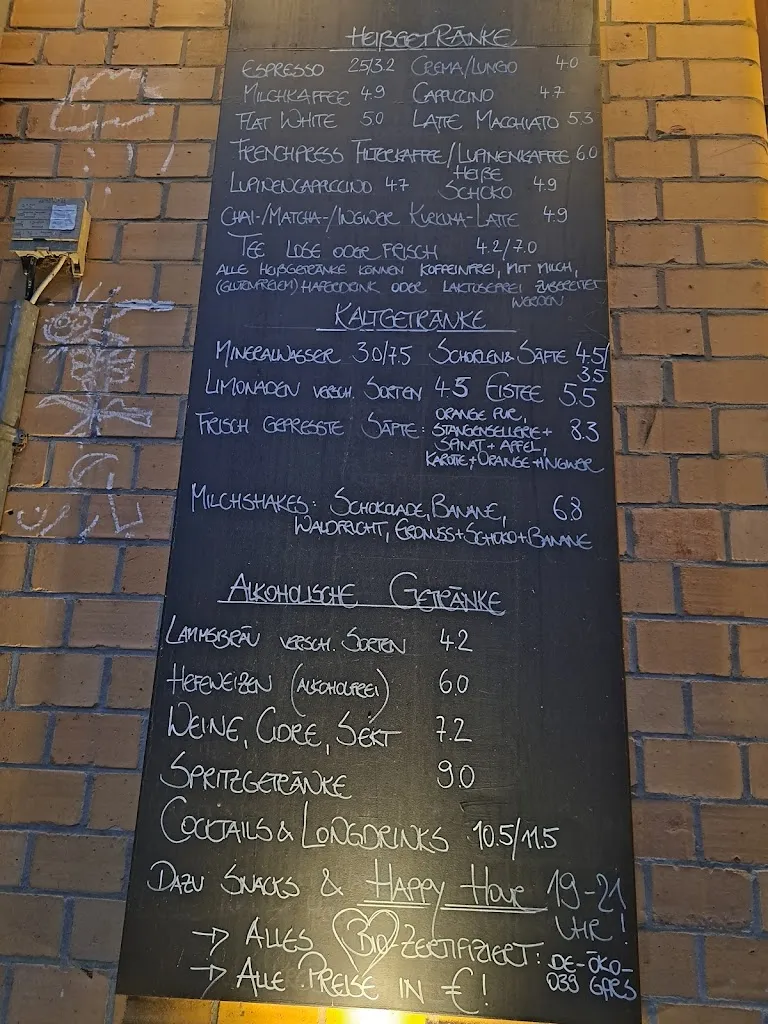 HEIßGETRÄNKE
ESPRESSO 2.5/3.2 CREMA/LUNGO 4.0
MILCHKAFFEE 4.9 CAPPUCINO 4.7
FLAT WHITE 5.0 LATTE MACCHIATO 5.3
FRENCHPRESS FILTERKAFFEE/LUPINENKAFFEE 6.0
LUPINENCAPPUCCINO 4.7 HEIßE SCHOKO 4.9
CHAI-/MATCHA-/INGWER KURKUMA-LATTE 4.9
TEE LOSE ODER FRISCH 4.2/7.0
ALLE HEIßGETRÄNKE KÖNNEN KOFFEINFREI, MIT MILCH,
(GLUTENFREIEM) HAFERDRINK ODER LAKTOSEFREI ZUBEREITET
WERDEN
KALTGETRÄNKE
MINERALWASSER 3.0/7.5 SCHORLEN & SÄFTE 4.5/
3.5
LIMONADEN VERSCH. SORTEN 4.5 EISTEE 5.5
FRISCH GEPRESSTE SÄFTE: ORANGE PUR, 8.3
STANGENSELLERIE+
SPINAT+APFEL,
KAROTTE+ORANGE+INGWER
MILCHSHAKES: SCHOKOLADE, BANANE, 6.8
WALDFRUCHT, ERDNUSS+SCHOKO+BANANE
ALKOHOLISCHE GETRÄNKE
LAMMSBRÄU VERSCH. SORTEN 4.2
HEFEWEIZEN (ALKOHOLFREI) 6.0
WEINE, CIDRE, SEKT 7.2
SPRITZGETRÄNKE 9.0
COCKTAILS & LONGDRINKS 10.5/11.5
DAZU SNACKS & HAPPY HOUR 19-21
UHR!
→ ALLES BIO-ZERTIFIZIERT: DE-ÖKO-
039 GARS
→ ALLE PREISE IN €!